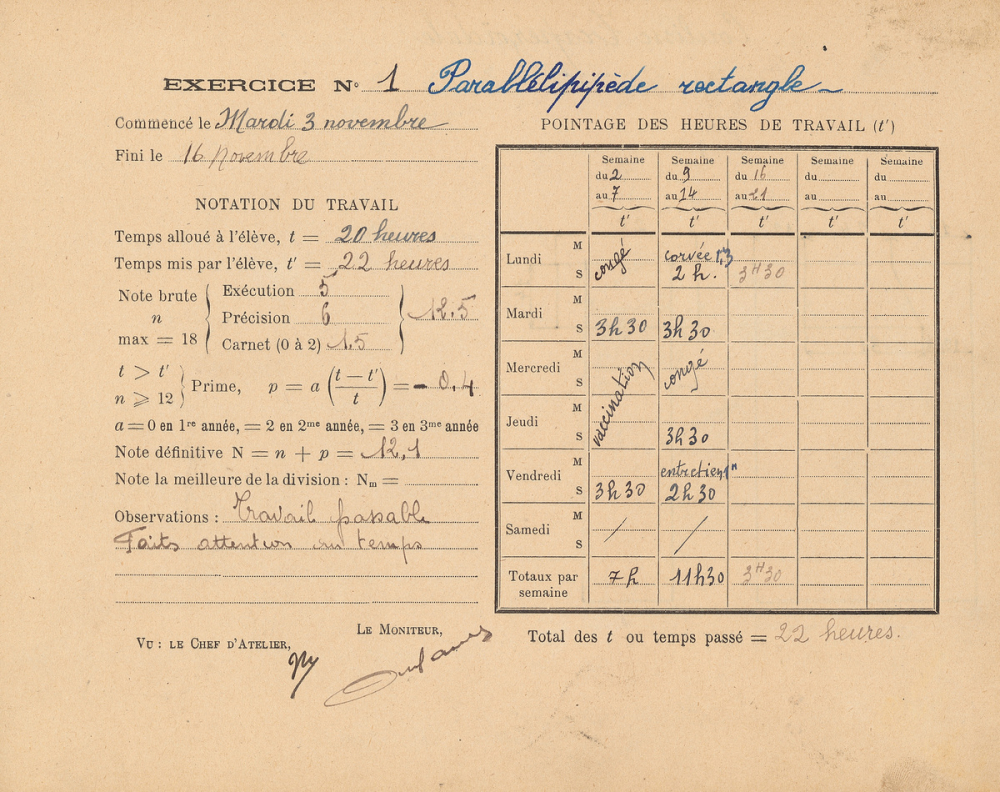 EXERCICE N° 1 Parallélipipède rectangle
Commencé le Mardi 3 novembre
Fini le 16 Novembre
NOTATION DU TRAVAIL
Temps alloué à l'élève, t = 20 heures
Temps mis par l'élève, t' = 22 heures
Note brute n max = 18
Exécution 5
Précision 6
Carnet (0 à 2) 1.5
12.5
t > t'
n ⩾ 12
Prime, p = a (t − t' / t) = - 0.4
a = 0 en 1re année, = 2 en 2me année, = 3 en 3me année
Note définitive N = n + p = 12,1
Note la meilleure de la division : Nm =
Observations : Travail passable
Faits attention au temps
LE MONITEUR,
VU : LE CHEF D'ATELIER,
POINTAGE DES HEURES DE TRAVAIL (t')
Semaine Semaine Semaine Semaine Semaine
du 2 du 9 du 16 du du
au 7 au 14 au 21 au au
t' t' t' t' t'
Lundi M S congé corvée 1,3 2 h. 3H30
Mardi M S 3h30 3h30
Mercredi M S vaccination congé
Jeudi M S 3h30
Vendredi M S 3h30 entretien 1h 2h30
Samedi M S / /
Totaux par semaine 7h 11h30 3H30
Total des t ou temps passé = 22 heures.